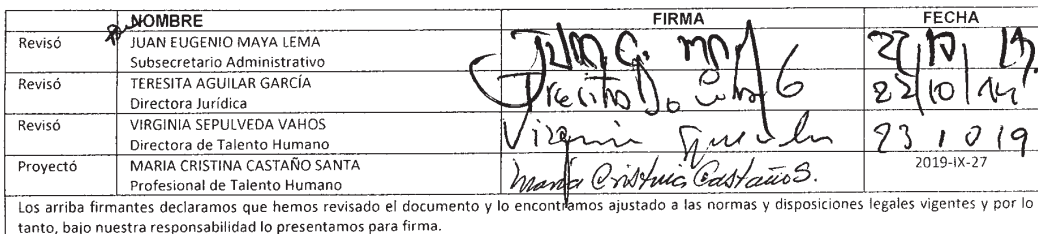 NOMBRE FIRMA FECHA
Revisó JUAN EUGENIO MAYA LEMA
Subsecretario Administrativo
Revisó TERESITA AGUILAR GARCÍA
Directora Jurídica
Revisó VIRGINIA SEPULVEDA VAHOS Virginia
Directora de Talento Humano 23 10 19
Proyectó MARIA CRISTINA CASTAÑO SANTA María Cristina Castaño S. 2019-IX-27
Profesional de Talento Humano
Los arriba firmantes declaramos que hemos revisado el documento y lo encontramos ajustado a las normas y disposiciones legales vigentes y por lo
tanto, bajo nuestra responsabilidad lo presentamos para firma.